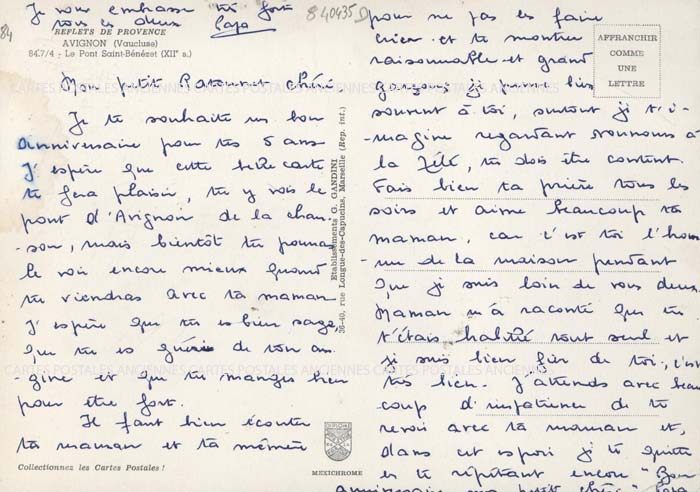 Je vous embrasse très fort
tous les deux Papa
84
840435 D
REFLETS DE PROVENCE
AVIGNON (Vaucluse)
84.7/4 - Le Pont Saint-Bénézet (XIIe s.)
Mon petit chéri
Je te souhaite un bon
anniversaire pour tes 5 ans
J'espère que cette belle carte
te fera plaisir, tu y vois le
pont d'Avignon de la chan
-son, mais bientôt tu pourras
le voir encore mieux quand
tu viendras avec ta maman
J'espère que tu es bien sage,
que tu es guéri de ton an-
-gine et que tu manges bien
pour être fort.
Il faut bien écouter
ta maman et ta mémère
Collectionnez les Cartes Postales !
Etablissements G. GANDINI
36-40, rue Longue-des-Capucins, Marseille (Rep. int.)
MEXICHROME
CARTES POSTALES ANCIENNES CARTES POSTALES ANCIENNES
CARTES POSTALES ANCIENNES CARTES POSTALES ANCIENNES
AFFRANCHIR
COMME
UNE
LETTRE
pour ne pas les faire
crier et te montrer
raisonnable et grand
garçon, je pense bien
souvent à toi, surtout je t'i-
-magine regardant nounours à
la Télé, tu dois être content.
Fais bien ta prière tous les
soirs et aime beaucoup ta
maman, car c'est toi l'hom
-me de la maison pendant
que je suis loin de vous deux.
Maman m'a raconté que tu
t'étais habillé tout seul et
je suis bien fier de toi, c'est
très bien. J'attends avec beau
coup d'impatience de te
revoir avec ta maman et,
dans cet espoir je te quitte
en te répétant encore "Bon
anniversaire mon petit chéri" Papa